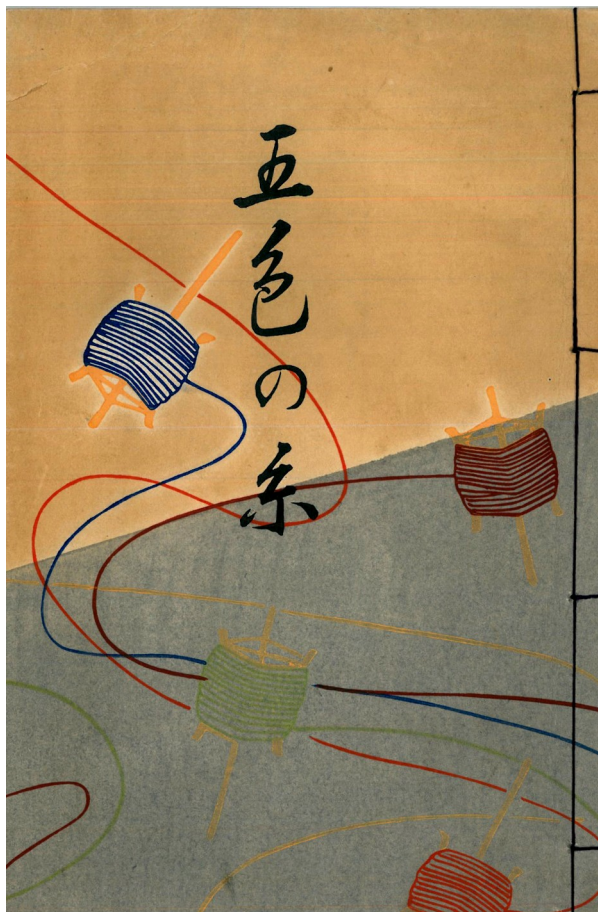 五色の糸